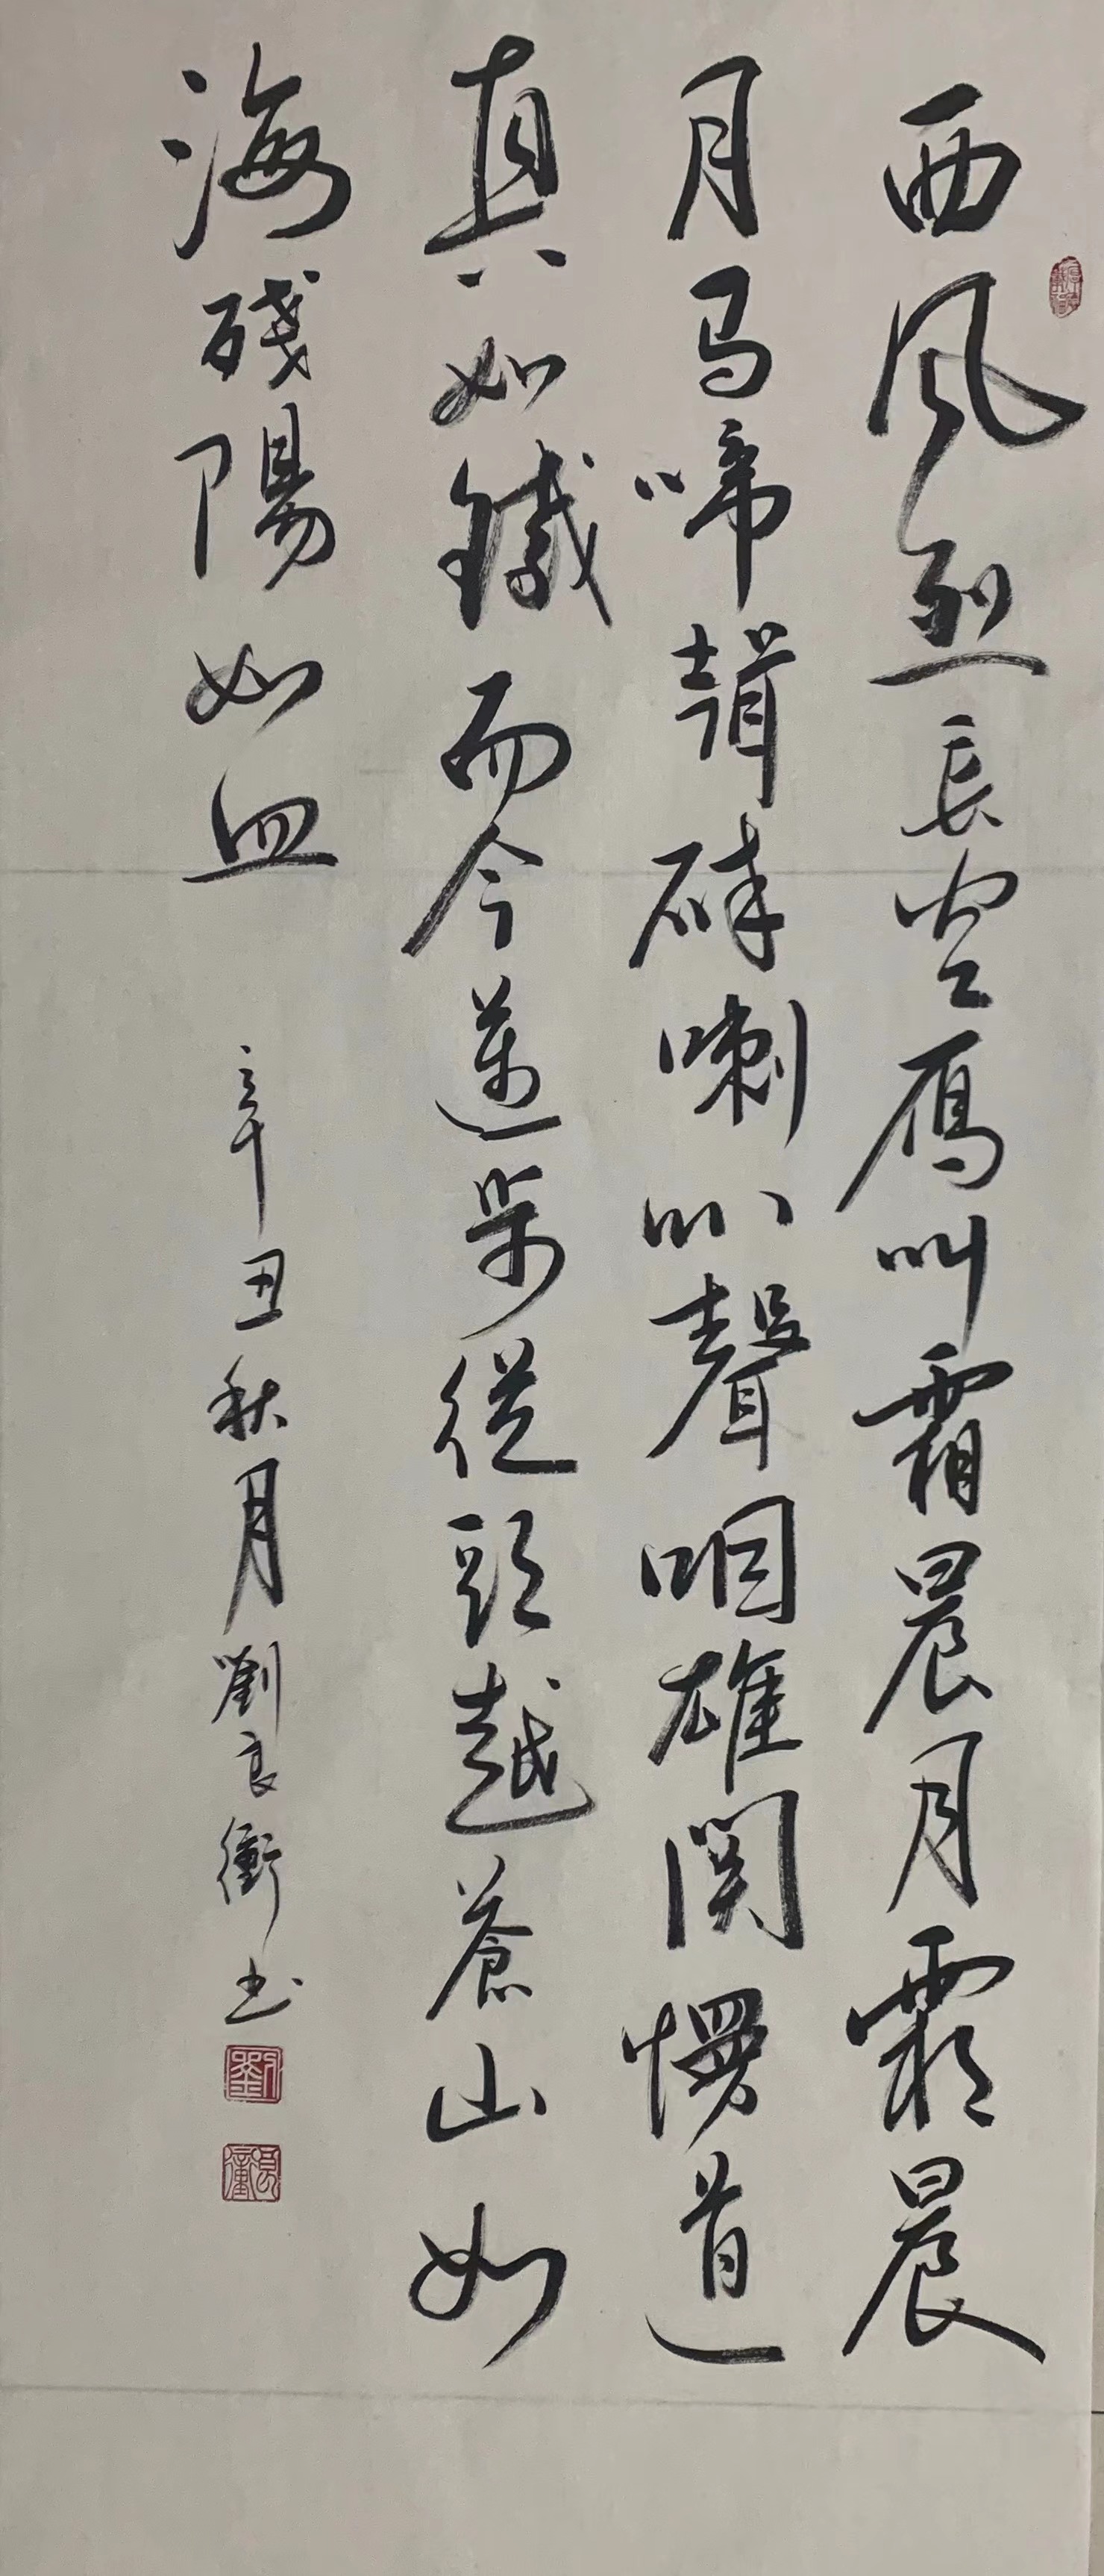 西风烈長空雁叫霜晨月霜晨
月马啼聲碎喇叭聲咽雄関慢道
真如鐵而今邁步從頭越蒼山如
海残陽如血
辛丑秋月劉良衡书
劉